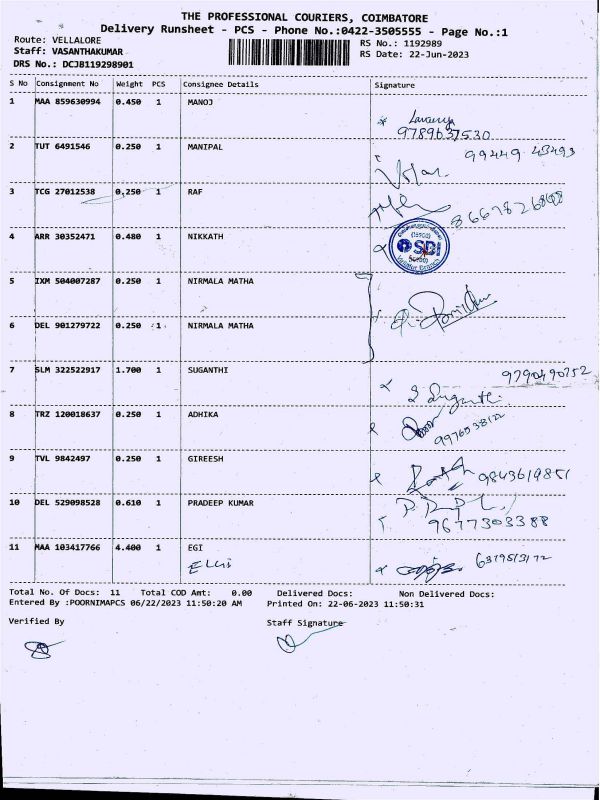 THE PROFESSIONAL COURIERS, COIMBATORE
Delivery Runsheet - PCS - Phone No.:0422-3505555 - Page No.:1
Route: VELLALORE
RS No.: 1192989
Staff: VASANTHAKUMAR
RS Date: 22-Jun-2023
DRS No.: DCJB119298901
S No Consignment No Weight PCS Consignee Details Signature
1 MAA 859630994 0.450 1 MANOJ
9789637530
2 TUT 6491546 0.250 1 MANIPAL
99449 43493
3 TCG 27012538 0.250 1 RAF
4 ARR 30352471 0.480 1 NIKKATH
SDI
5 IXM 504007287 0.250 1 NIRMALA MATHA
6 DEL 901279722 0.250 1 NIRMALA MATHA
7 SLM 322522917 1.700 1 SUGANTHI
9790490752
8 TRZ 120018637 0.250 1 ADHIKA
9 TVL 9842497 0.250 1 GIREESH
9843619851
10 DEL 529098528 0.610 1 PRADEEP KUMAR
9677303388
11 MAA 103417766 4.400 1 EGI
Total No. Of Docs: 11 Total COD Amt: 0.00 Delivered Docs: Non Delivered Docs:
Entered By :POORNIMAPCS 06/22/2023 11:50:20 AM Printed On: 22-06-2023 11:50:31
Verified By Staff Signature